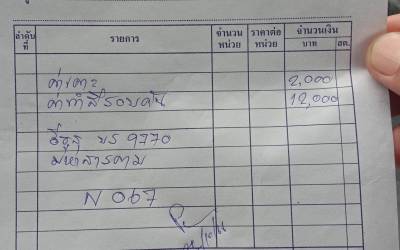 ลำดับที่ รายการ จำนวนหน่วย ราคาต่อหน่วย จำนวนเงิน
บาท สต.
ค่าเคาะ 2,000
ค่าทำสีรอบคัน 12,000
อีซูซุ บร 9770
มหาสารคาม
N 067